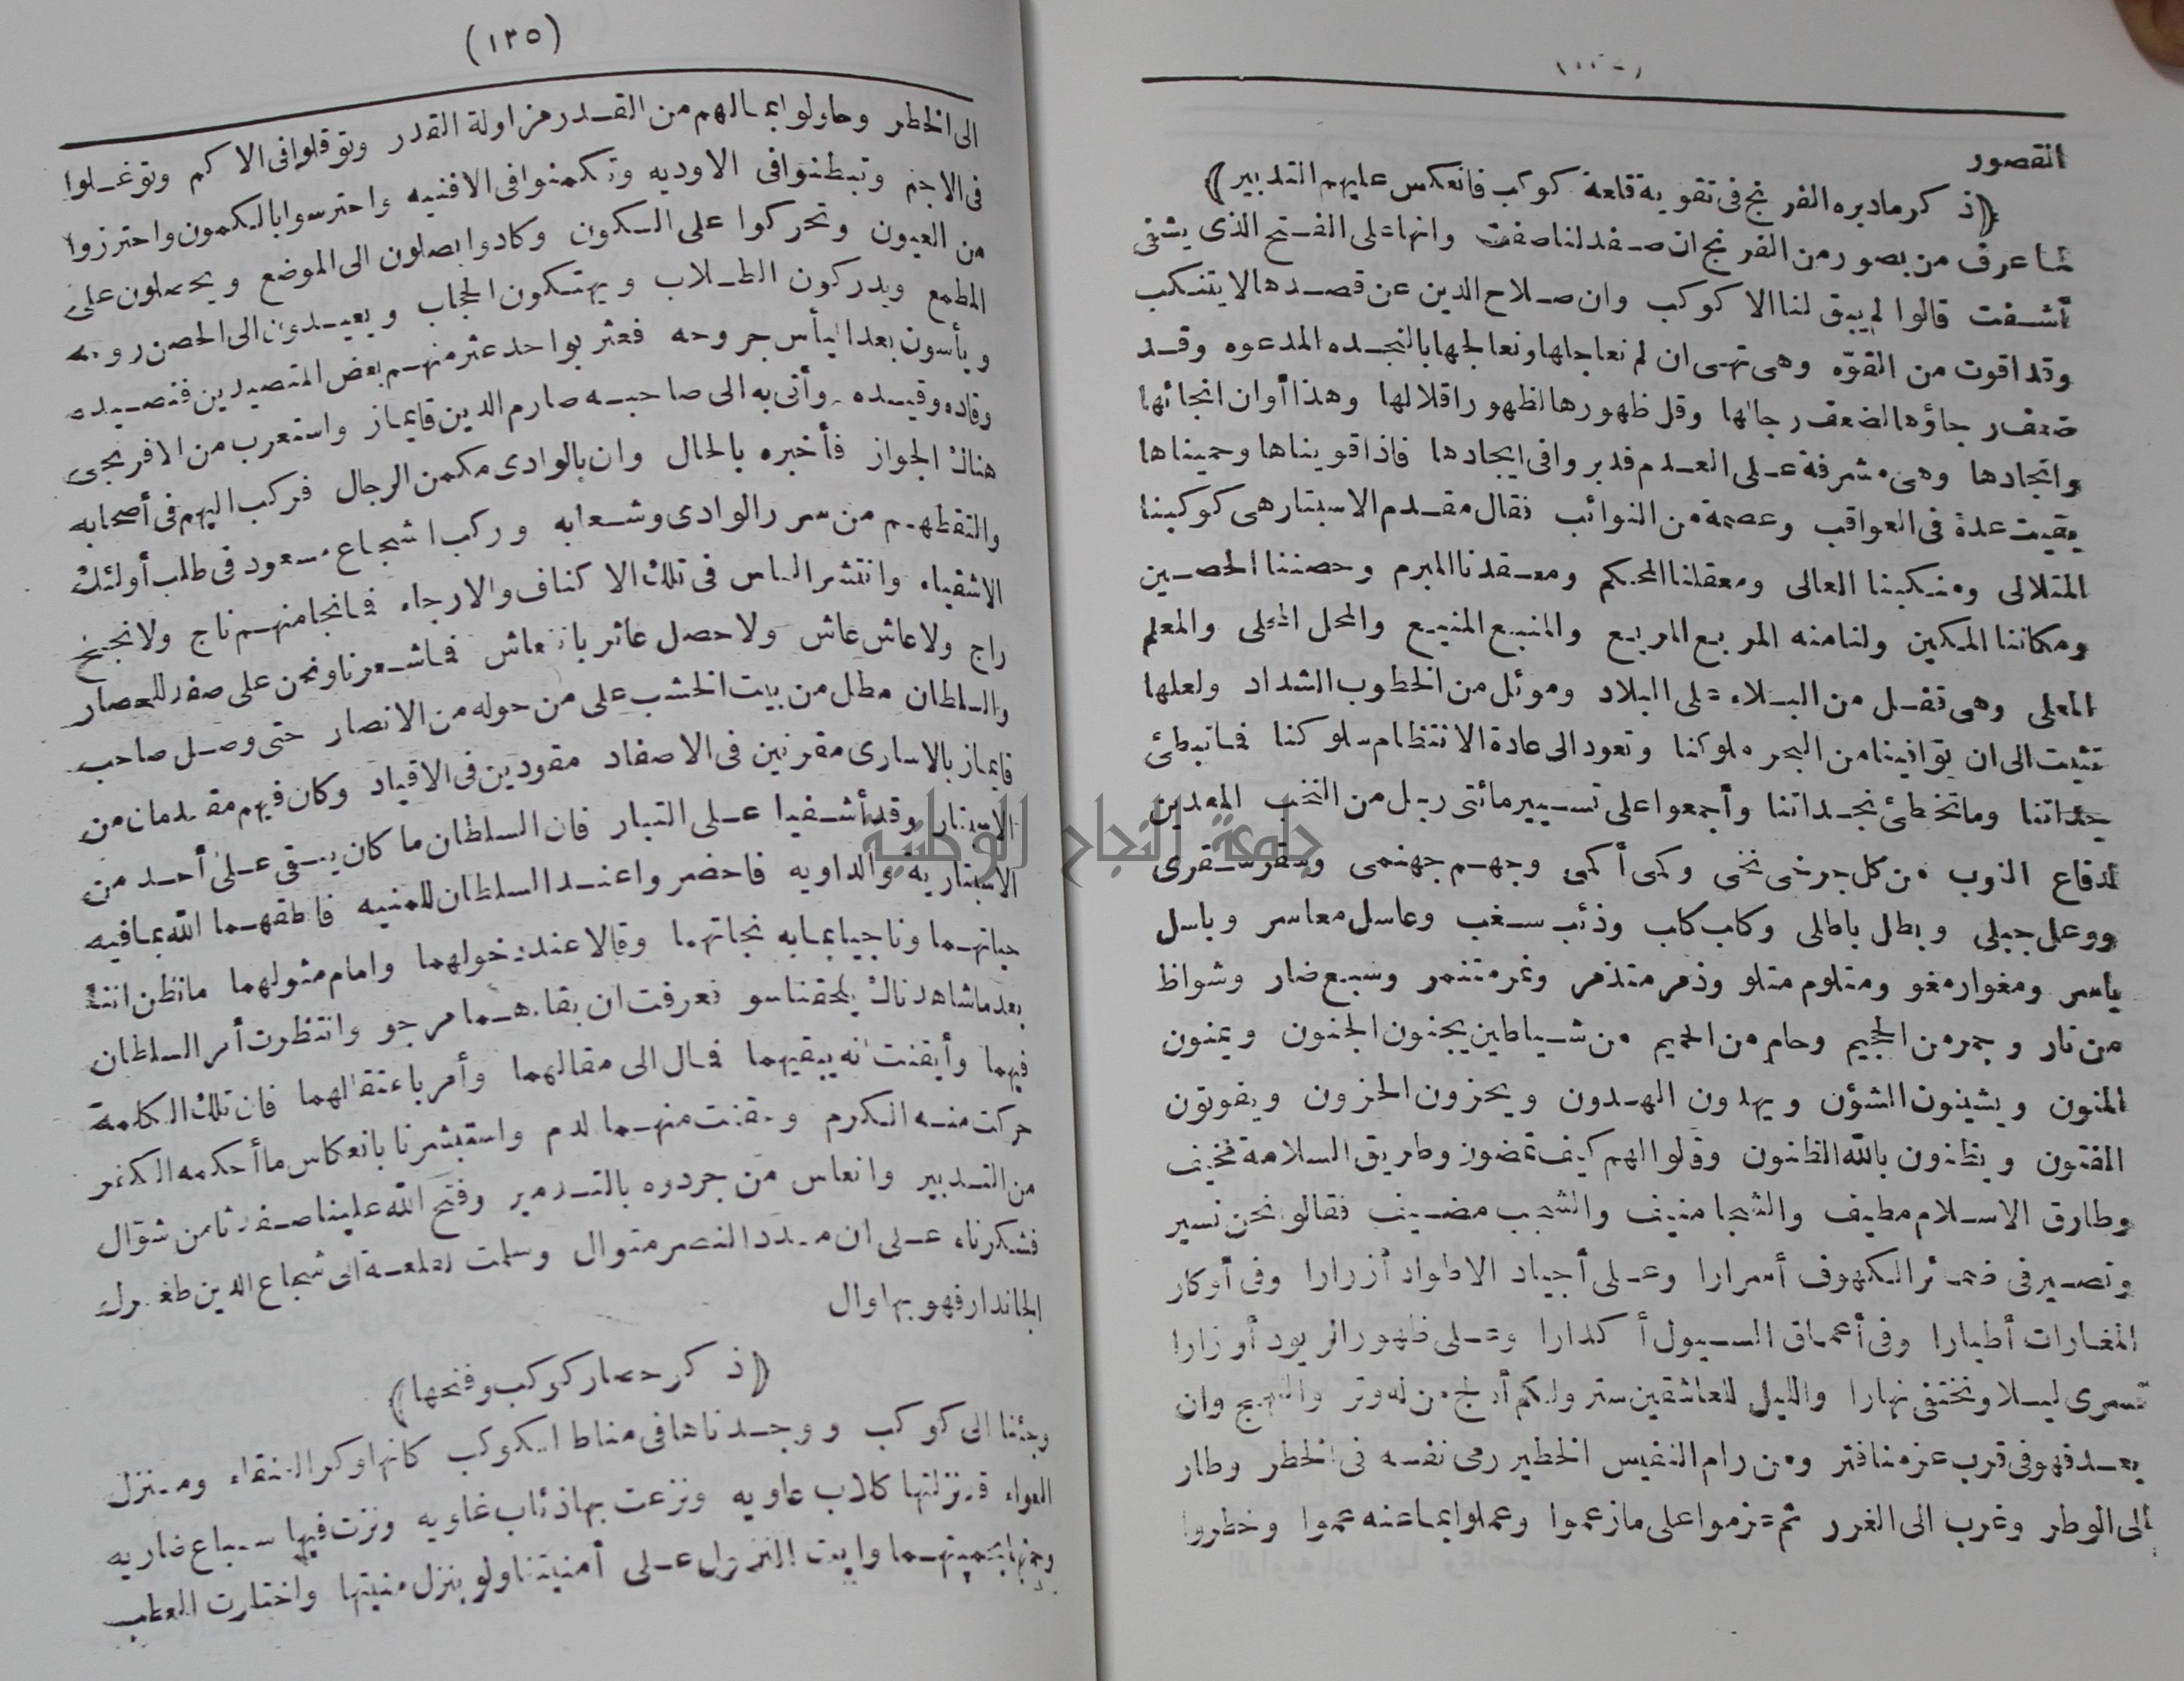 القصور
﴿ذكر مادبره الفرنج فى تقوية قلعة كوكب فانعكس عليهم التدبير﴾
لما عرف من بصور من الفرنج ان صفد لنا صفت وانها على الفتح الذى يشفى
أشفت قالوا لم يبق لنا الا كوكب وان صلاح الدين عن قصدها لا يتنكب
وقد اقوت من القوّه وهى تهى ان لم نعاجلها ونعالجها بالنجده المدعوه وقد
ضعف رجاؤها لضعف رجالها وقل ظهورها لظهور اقلالها وهذا أوان انجائها
وانجادها وهى مشرفة على العدم فدبروا فى ايجادها فاذا قويناها وحميناها
بقيت عدة فى العواقب وعصمة من النوائب فقال مقدم الاسبتار هى كوكبنا
المتلالى ومنكبنا العالى ومعقلنا المحكم ومعقدنا المبرم وحصننا الحصين
ومكاننا المكين ولنا منه المربع المريع والمنبع المنيع والمحل المحلى والمعلم
المعلى وهى قفل من البلاء على البلاد وموئل من الخطوب الشداد ولعلها
تثبت الى ان توافينا من البحر ملوكنا وتعود الى عادة الانتظام سلوكنا فما تبطئ
نجداتنا وأجمعوا على تسيير مائتى رجل من النخب المعدين
لدفاع النوب من كل جرخى نخى وكمى أكمى وجهم جهنمى وسقر سقرى
ووعل جبلى وبطل باطلى وكلب كلب وذئب سغب وعاسل معاسر وباسل
ياسر ومغوار مغو ومتلوم متلو وذمر متذمر ونمر متنمر وسبع ضار وشواظ
من نار وجمر من الجحيم وحام من الحميم من شياطين يجنون الجنون ويمنون
المنون ويشينون الشؤن ويهدون الهدون ويحزون الحزون ويفوتون
المفتون ويظنون بالله الظنون وقالوا لهم كيف تمضون وطريق السلامة مخيف
وطارق الاسلام مطيف والشجا منيف والشجب مضيف فقالوا نحن نسير
ونصير فى ضمائر الكهوف أسرارا وعلى أجياد الاطواد أزرارا وفى أوكار
المغارات أطيارا وفى أعماق السيول أكدارا وعلى ظهور الربود أوزارا
نسرى ليلا ونختفى نهارا والليل للعاشقين ستر ولكم أدلج من له وتر والنهج وان
بعد فهو فى قرب عزمنا فتر ومن رام النفيس الخطير رمى نفسه فى الخطر وطار
الى الوطر وغرب الى الغرر ثم عزموا على ما زعموا وعملوا بما عنه عموا وخطروا
(١٣٥)
الى الخطر وحاولوا بمالهم من القدر مزاولة القدر وتوقلوا فى الاكم وتوغلوا
فى الاجم وتبطنوا فى الاوديه وتكمنوا فى الافنيه واحترسوا بالكمون واحترزوا
من العيون وتحركوا على السكون وكادوا يصلون الى الموضع ويحصلون على
المطمع ويدركون الطلاب ويهتكون الحجاب ويعيدون الى الحصن روحه
ويأسون بعد اليأس جروحه فعثر بواحد عثر منهم بعض المتصيدين فتصيده
وقاده وقيده وأتى به الى صاحبه صارم الدين قايماز واستغرب من الافرنجى
هناك الجواز فأخبره بالحال وان بالوادى مكمن الرجال فركب اليهم فى أصحابه
والتقطهم من سرر الوادى وشعابه وركب الشجاع مسعود فى طلب أولئك
الاشقياء وانتشر الناس فى تلك الاكناف والارجاء فما نجا منهم ناج ولا نجح
راج ولا عاش عاش ولا حصل عاثر بانتعاش فما شعرنا ونحن على صفد للحصار
والسلطان مطل من بيت الخشب على من حوله من الانصار حتى وصل صاحب
قايماز بالاسارى مقرنين فى الاصفاد مقودين فى الاقياد وكان فيهم مقدمان من
الاسبتار وقد أشفيا على التبار فان السلطان ما كان يبقى على أحد من
الاسبتارية والداويه فاحضروا عند السلطان للمنيه فانطقهما الله بما فيه
حياتهما وناجيا بما به نجاتهما وقالا عند دخولهما وامام مثولهما ما نظن اننا
بعد ما شاهدناك يلحقنا سو فعرفت ان بقاءهما مرجو وانتظرت أمر السلطان
فيهما وأيقنت انه يبقيهما فمال الى مقالهما وأمر باعتقالهما فان تلك الكلمة
حركت منه الكرم وحقنت منهما الدم واستبشرنا بانعكاس ما أحكمه الكفر
من التدبير وانعاس من جردوه بالتدمير وفتح الله علينا صفد ثامن شوال
فشكرناه على ان مدد النصر متوال وسلمت القلعة الى شجاع الدين طغرل
الجاندار فهو بها وال
﴿ذكر حصار كوكب وفتحها﴾
وجئنا الى كوكب ووجدناها فى مناط الكوكب كانها وكر العنقاء ومنزل
العواء قد نزلتها كلاب عاويه ونزعت بها ذئاب غاويه ونزت فيها سباع ضاريه
النزول على أمنيتنا ولو بنزل منيتها واختارت العطب
جامعة النجاح الوطنية